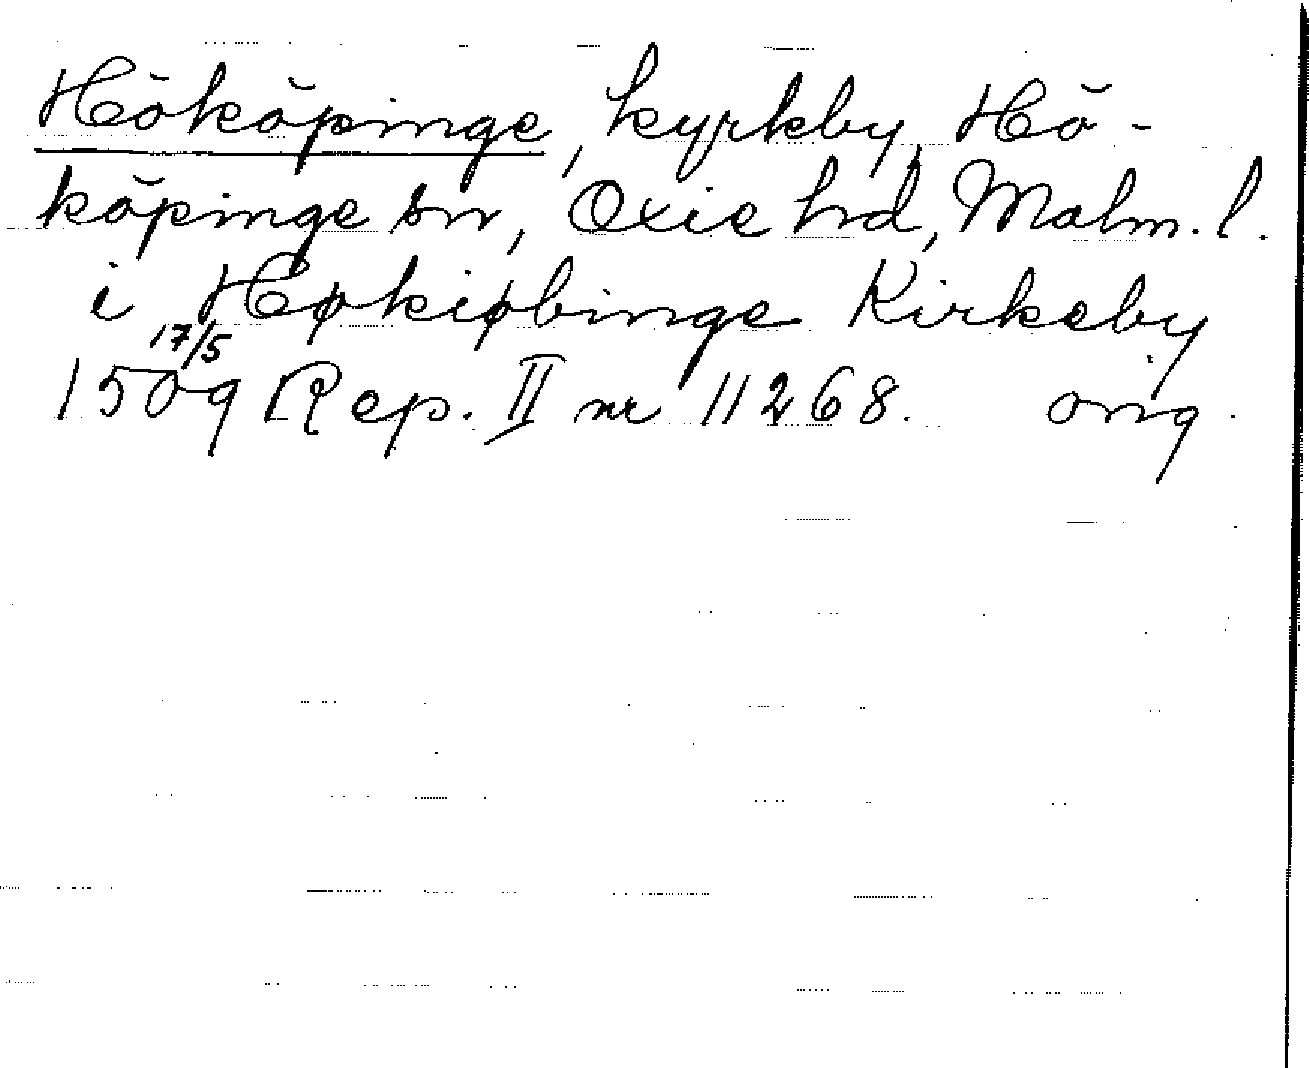 Hököpinge, kyrkby, Hö-
köpinge sn, Oxie hrd, Malm. l.
i Høkiøbinge Kirkeby
17/5
1509 Rep. II nr 11268. orig.